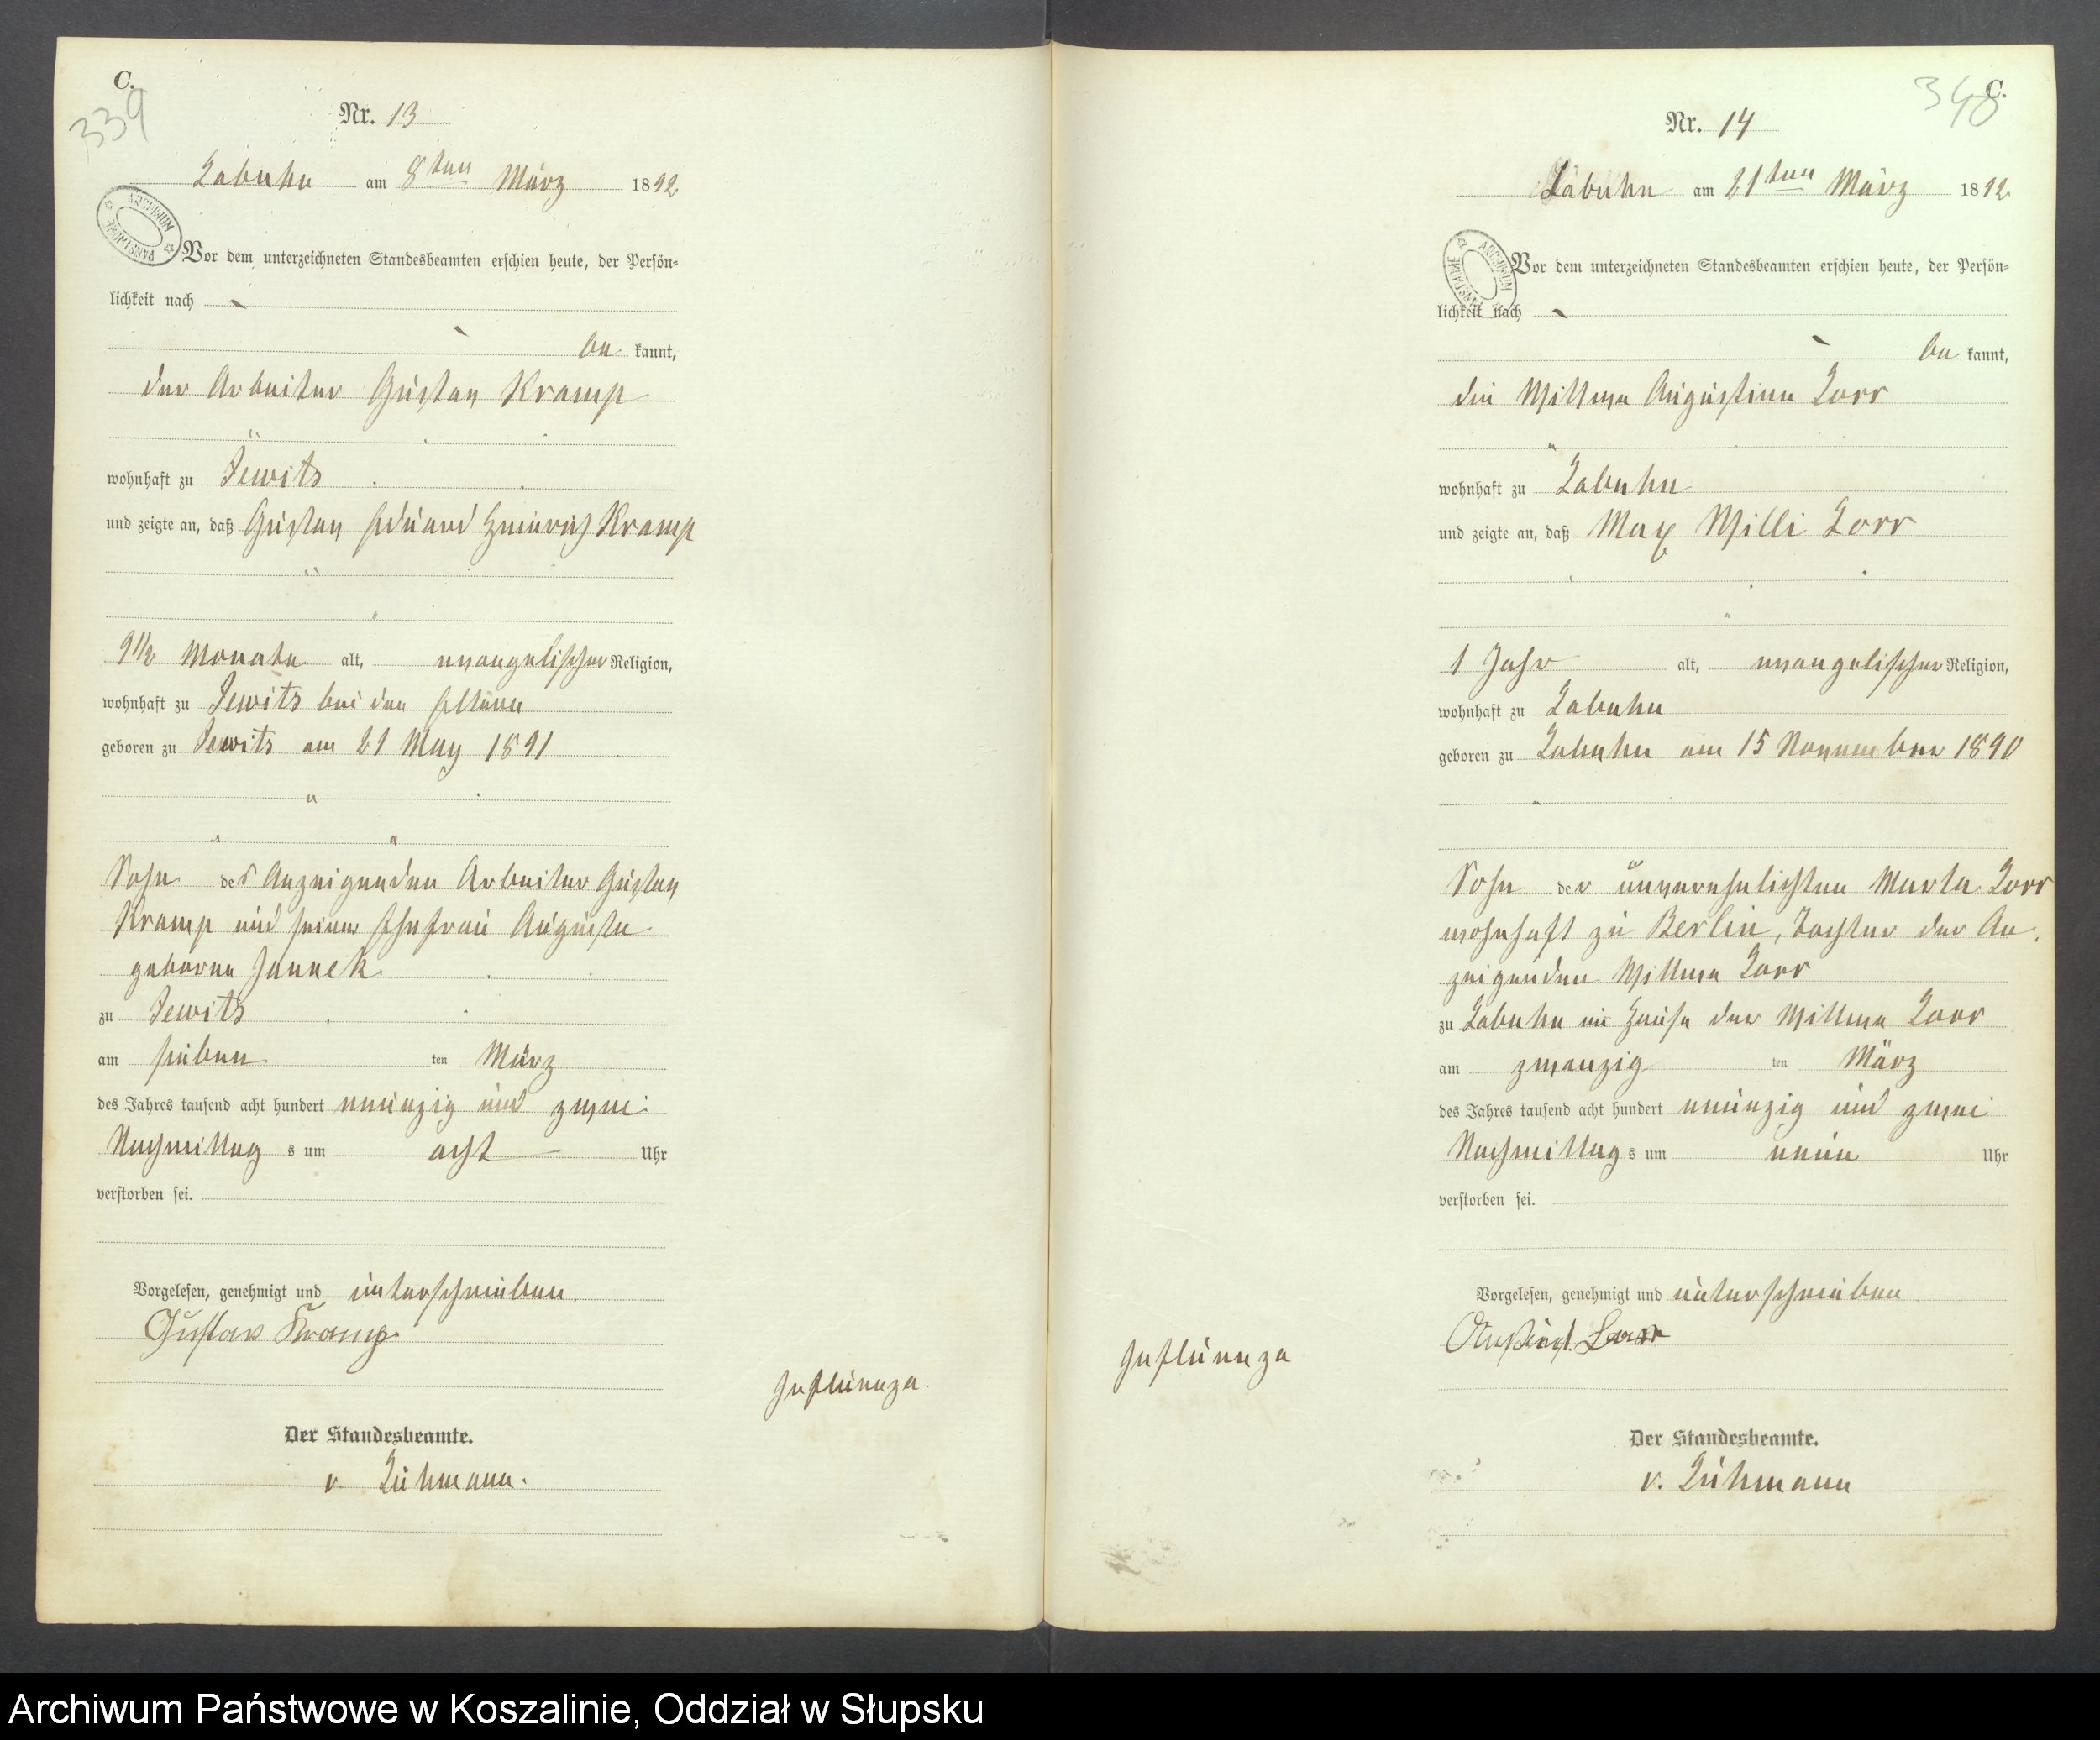 C.
339
Nr. 13
Labuhn am 8ten März 1892
ARCHIWUM PAŃSTWOWE
Vor dem unterzeichneten Standesbeamten erschien heute, der Persön-
lichkeit nach
be kannt,
der Arbeiter Gustav Kramp
wohnhaft zu Jewitz
und zeigte an, daß Gustav Eduard Heinrich Kramp
9 1/2 Monate alt, evangelischer Religion,
wohnhaft zu Jewitz bei den Eltern
geboren zu Jewitz am 21 May 1891
Sohn des Anzeigenden Arbeiter Gustav
Kramp und seiner Ehefrau Auguste
geborne Jannek
zu Jewitz
am sieben ten März
des Jahres tausend acht hundert neunzig und zwei
Nachmittag s um acht Uhr
verstorben sei.
Vorgelesen, genehmigt und unterschrieben.
Gustav Kramp.
Influenza.
Der Standesbeamte.
v. Lühmann.
C.
340
Nr. 14
Labuhn am 21ten März 1892
ARCHIWUM PAŃSTWOWE
Vor dem unterzeichneten Standesbeamten erschien heute, der Persön-
lichkeit nach
be kannt,
die Wittwe Augustine Lorr
wohnhaft zu Labuhn
und zeigte an, daß Max Willi Lorr
1 Jahr alt, evangelischer Religion,
wohnhaft zu Labuhn
geboren zu Labuhn am 15 November 1890
Sohn der unverehelichten Marta Lorr
wohnhaft zu Berlin, Tochter der An-
zeigenden Wittwe Lorr
zu Labuhn im Hause der Wittwe Lorr
am zwanzig ten März
des Jahres tausend acht hundert neunzig und zwei
Nachmittag s um neun Uhr
verstorben sei.
Vorgelesen, genehmigt und unterschrieben.
Lorr
Influenza
Der Standesbeamte.
v. Lühmann
Archiwum Państwowe w Koszalinie, Oddział w Słupsku